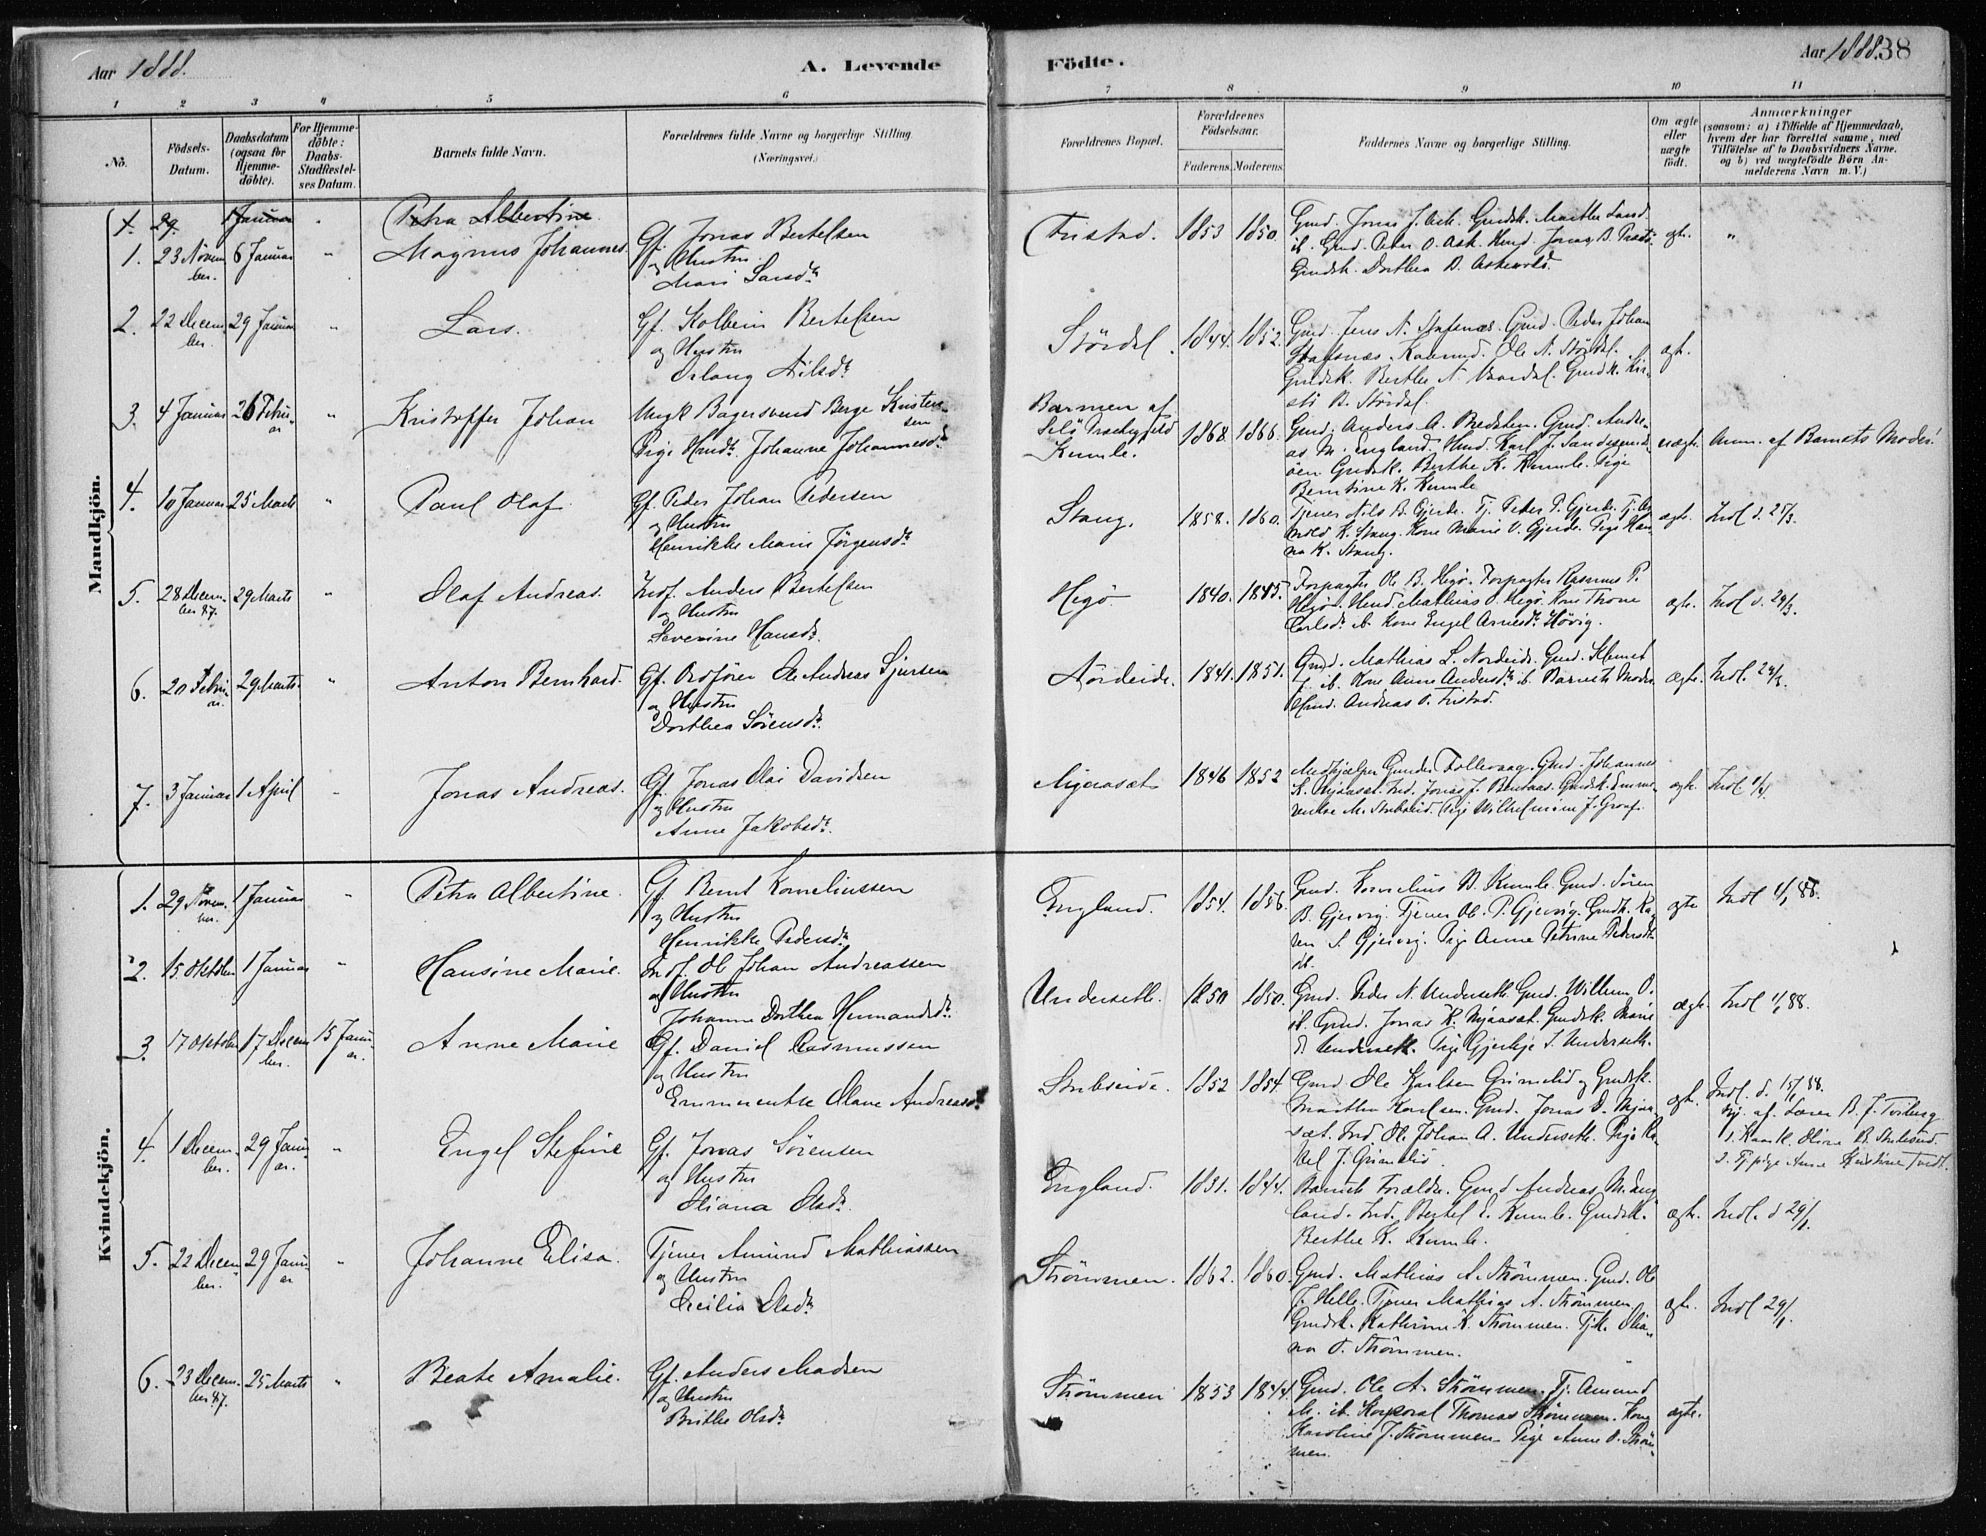 Aar 1888.
A. Levende
Födte.
Aar 1888.
38
1 2 3 4 5 6 7 8 9 10 11
No.
Födsels-
Datum.
Daabsdatum
(ogsaa for
Hjemme-
döbte).
For Hjemme-
döbte:
Daabs-
Stadfæstel-
ses Datum.
Barnets fulde Navn.
Forældrenes fulde Navne og borgerlige Stilling
(Næringsvei.)
Forældrenes Bopæl.
Forældrenes
Födselsaar.
Faderens. Moderens.
Faddernes Navne og borgerlige Stilling.
Om ægte
eller
uægte
födt.
Anmærkninger
(saasom: a) i Tilfælde af Hjemmedaab,
hvem der har forrettet samme, med
Tilföielse af to Daabsvidners Navne,
og b) ved uægtefödte Börn An-
melderens Navn m. V.)
Mandkjön.
1. 29. 1 Januar Petra Albertine.
1. 23 Novem
ber. 6 Januar " Magnus Johannes Gf. Jonas Bertelsen
og Hustru
Mari Larsdr.
Fristad. 1853 1850.
Gmd. Peder O. Ask.
Gmdsk. Dorthea
ægte. "
2. 22 Decem
ber. 29 Januar " Lars. Gf. Kolbein Bertelsen
og Hustru
Nilsdr.
Stördal. 1844. 1852.
Ole N. Stördal.
Gmdsk. Berthe N.
B. Stördal.
ægte.
3. 4 Januar 26 Febru
ar " Kristoffer Johan Ungk. Bagersvend Berge Kristen-
sen
Pige Johanne Johannesdr.
Barmen af
Kumle. 1868. 1866. Gmd. Anders A. Bredsten. Gmd. Andre-
as M. England. Karl J.
Gmdsk. Berthe K. Kumle. Pige
Berntine K. Kumle
uægte. Anm. af Barnets Moder.
4. 10 Januar 25 Marts " Paul Olaf. Gf. Peder Johan Pedersen
og Hustru
Henrikke Marie Jörgensdr.
Stang. 1858. 1860. Tjener Nils B. Gjerde. Tj. Peder P. Gjerde.
K. Stang. Kone Marie O. Gjerde. Pige Han-
na K. Stang.
ægte. Indl. d. 25/3.
5. 28 Decem-
ber 87. 29 Marts " Olaf Andreas. Inds. Anders Bertelsen
og Hustru
Severine Hansdr.
Hegö. 1840. 1845. Forpagter Ole B. Hegö. Forpagter Rasmus P.
Hegö. Mathias O. Hegö. Kone Thone
Carlsdr. ib. Kone Engel Arnesdr. Hövig.
ægte. Indl. d. 29/3.
6. 20 Febru-
ar. 29 Marts. " Anton Bernhard. Gf. Ordförer Ole Andreas Sjursen
og Hustru
Dorthea Sörensdr.
Nördeide. 1841. 1851. Gmd. Mathias L. Nordeide. Gmd. Klemet
ib. Kone Anne Andersdr. ib. Barnets Moder
Gmd. Andreas O. Fristad.
ægte. Indl. 29/3.
7. 3 Januar 1 April " Jonas Andreas. Gf. Jonas Olai Davidsen
og Hustru
Anne Jakobsdr.
1846 1852 Medhjælper Gunder Folkevaag. Gmd. Johannes
Jonas J. Gmdsk. Emme-
rentse M. Pige Wilhelmine J.
ægte. Indl. 1/4.
Kvindekjön.
1. 29 Novem-
ber. 1 Januar " Petra Albertine. Gf. Bernt Korneliussen
og Hustru
Henrikke Pedersdr.
England. 1854. 1856. Gmd. Kornelius B. Kumle. Gmd. Sören
B. Gjervig. Tjener Ole P. Gjervig. Gmdsk. Ka-
ren S. Gjervig. Pige Anne Petrine Pedersdr.
ib.
ægte Indl 1/1 88.
2. 15 Oktober 1 Januar " Hansine Marie. Inds. Ole Johan Andreassen
og Hustru
Johanne Dorthea Hermandsdr.
Underseth. 1850 1850. Gmd. Peder N. Underseth. Gmd. Willum O.
ib. Gmd. Jonas K. Gmdsk. Marie
Underseth. Pige S. Underseth.
ægte Indl 1/1 88.
3. 17 Oktober 17 Decem
ber. 15 Janu-
ar. Anne Marie Gf. Daniel Rasmussen
og Hustru
Emmerentse Olave Andreasdr.
1852 1854. Gmd. Ole Karlsen Grimelid og Gmdsk.
Marthe Karlsen. Gmd. Jonas D.
Inds. Ole Johan A. Underseth. Pige Ra-
kel J. Grimelid.
ægte. Indl. d. 15/1 88.
Hj. af Lærer B. J.
1.
2. Tj. pige Anne Kristine Tvedt.
4. 1 Decem-
ber. 29 Janu-
ar. " Engel Stefine Gf. Jonas Sörensen
og Hustru
Oliana Olsdr.
England. 1831. 1844. Barnets Forældre. Gmd Andreas M. Eng-
land. Inds. Bertel E. Kumle. Gmdsk.
Berthe K. Kumle.
ægte. Indl. d 29/1.
5. 22 Decem-
ber. 29 Janu-
ar " Johanne Elisa. Tjener Amund Mathiassen
og Hustru
Cecilia Olsdr.
Strömmen. 1862. 1860. Gmd. Mathias A. Strömmen. Gmd. Ole
J. Helle. Tjener Mathias A. Strömmen
Gmdsk. Kathrine K. Strömmen. Olia-
na O. Strömmen.
ægte. Indl 29/1.
6. 23 Decem-
ber 87. 25 Marts " Beate Amalie. Gf. Anders Madsen
og Hustru
Brithe Olsdr.
Strömmen 1853 1844 Gmd. Ole A. Strömmen. Tj. Amund
M. ib. Korporal Thomas Strömmen. Kone
Karoline J. Strömmen. Pige Anne O. Ström-
men.
ægte.